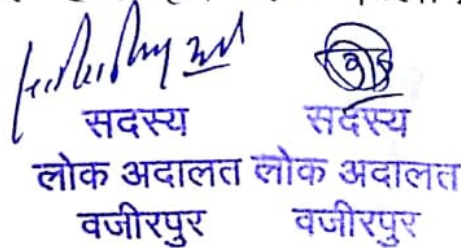 सदस्य सदस्य
लोक अदालत लोक अदालत
वजीरपुर वजीरपुर